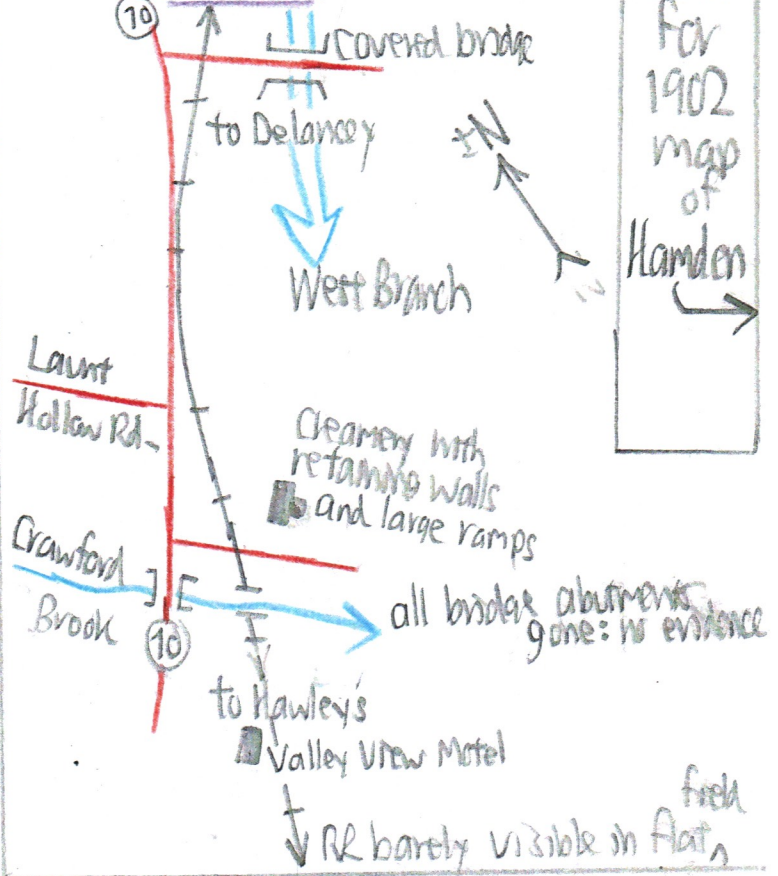 10
Covered bridge
to Delancey
±N
West Branch
For
1902
map
of
Hamden
Launt
Hollow Rd.
Creamery with
retaining walls
and large ramps
Crawford
Brook
10
all bridge abutments
gone: no evidence
to Hawley's
Valley View Motel
field
RR barely visible in flat ^